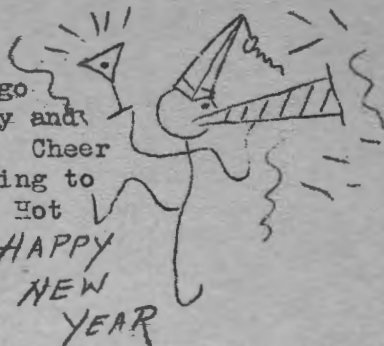 go
y and
Cheer
ing to
Hot
HAPPY
NEW
YEAR